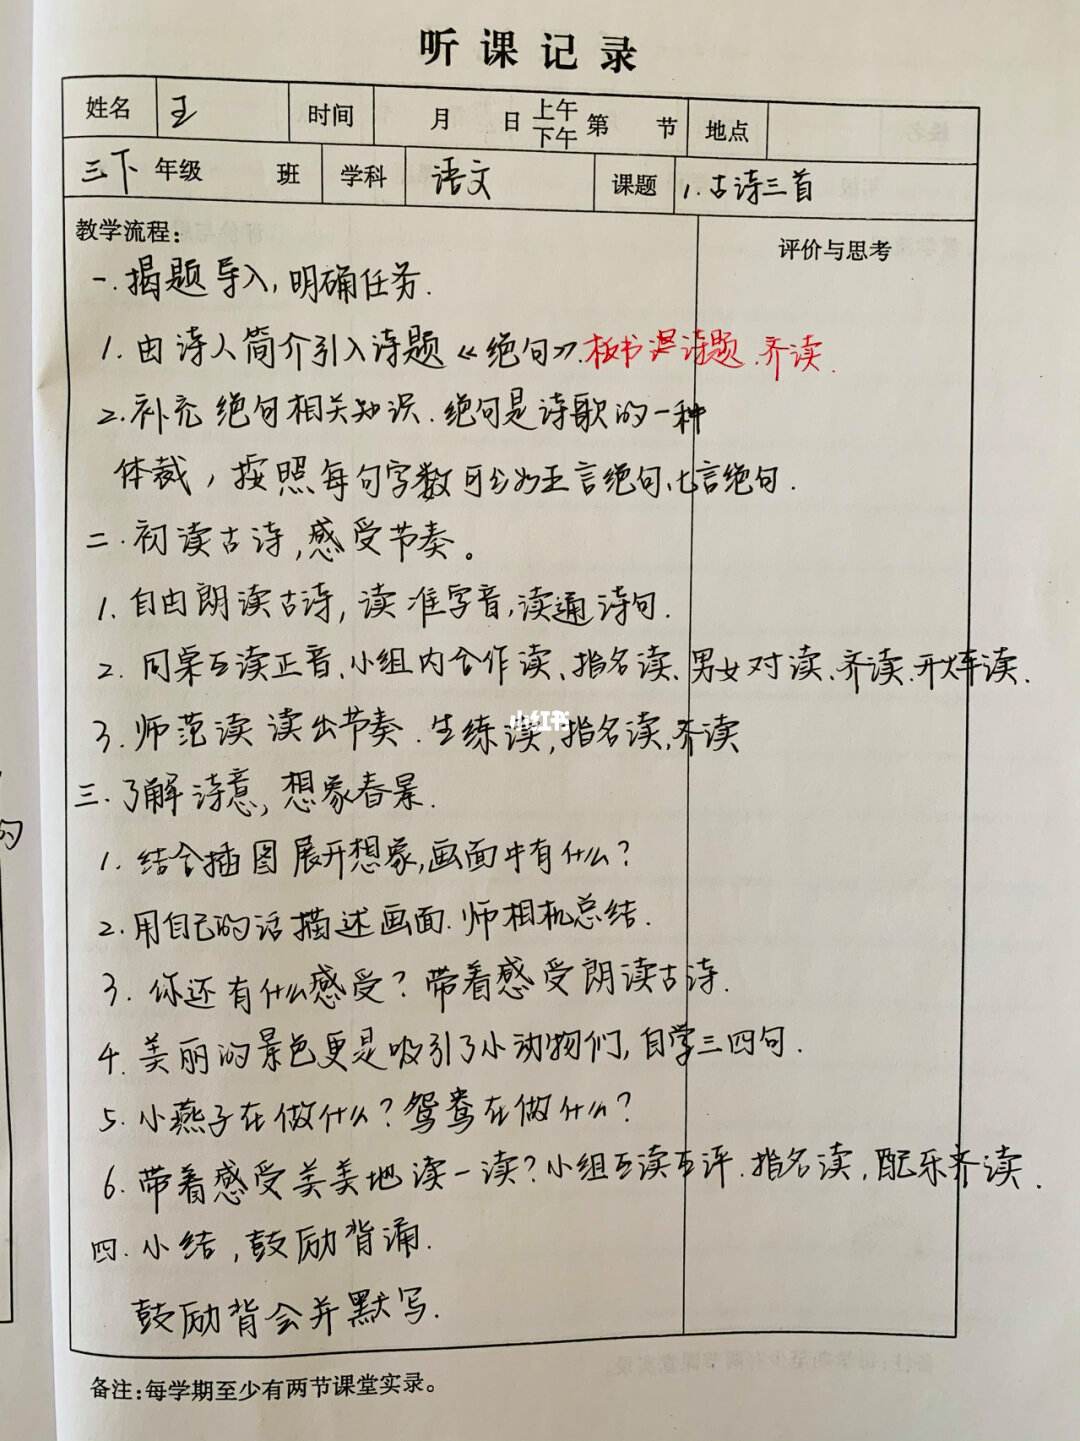 听课记录
姓名 王 时间 月 日 上午 下午 第 节 地点
三下 年级 班 学科 语文 课题 1.古诗三首
教学流程： 评价与思考
一.揭题导入,明确任务.
1.由诗人简介引入诗题《绝句》.板书诗题.齐读.
2.补充绝句相关知识.绝句是诗歌的一种
体裁,按照每句字数可分为五言绝句、七言绝句.
二.初读古诗,感受节奏。
1.自由朗读古诗,读准字音,读通诗句.
2.同桌互读正音、小组内合作读、指名读、男女对读、齐读、开火车读.
3.师范读 读出节奏.生练读,指名读,齐读
小红书
三.了解诗意,想象春景.
1.结合插图展开想象,画面中有什么?
2.用自己的话描述画面.师相机总结.
3.你还有什么感受?带着感受朗读古诗.
4.美丽的景色更是吸引了小动物们,自学三四句.
5.小燕子在做什么?鸳鸯在做什么?
6.带着感受美美地读一读?小组互读互评.指名读,配乐齐读.
四.小结,鼓励背诵.
鼓励背会并默写.
备注:每学期至少有两节课堂实录。